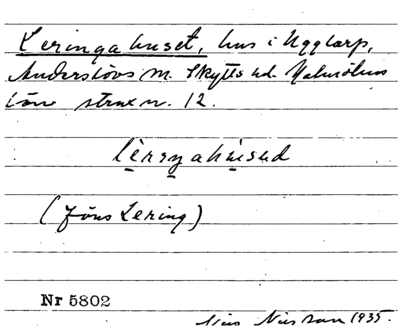 Leringahuset, hus i Ugglarp,
Anderslövs sn. Skytts hd. Malmöhus
län strax n. 12.
lèrıŋahùsəd
(Jöns Lering)
Nr 5802
Nils Nilsson 1935.